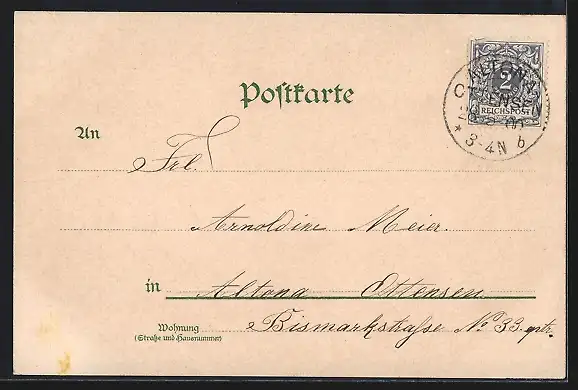 Postkarte
2
REICHSPOST
ALTONA
OTTENSEN
* 3-4N b
An
Frl.
Arnoldine Meier.
in Altona Ottensen
Wohnung
(Straße und Hausnummer)
Bismarkstraße No 33. ptr.